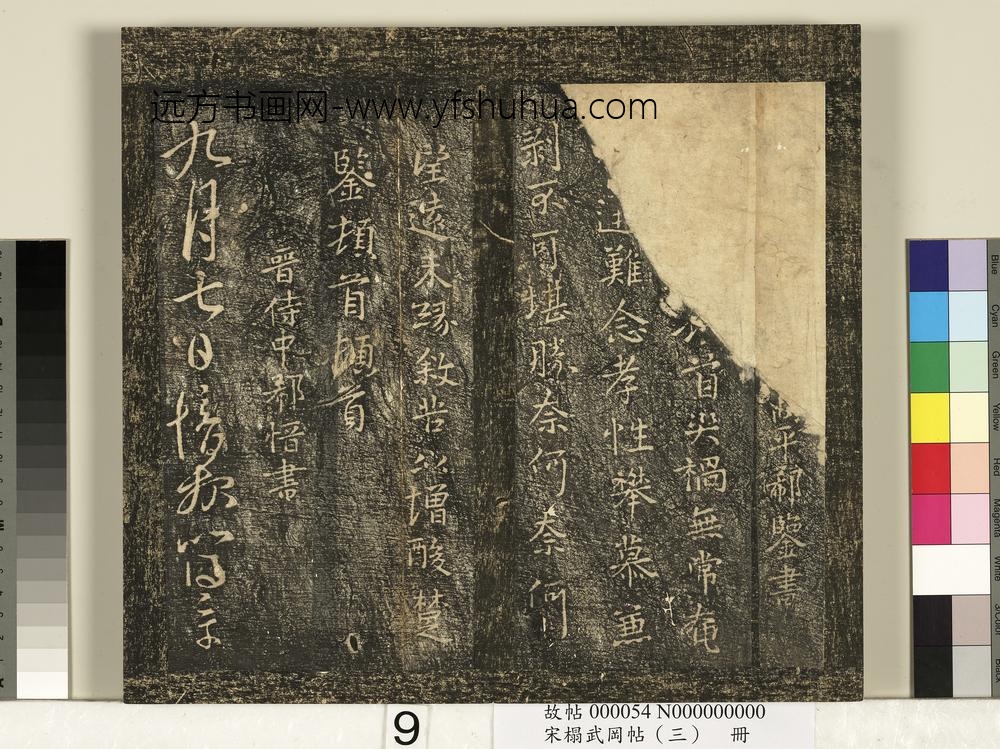 远方书画网-www.yfshuhua.com
郗鑒書
首災禍無常奄
難念孝性攀慕兼
剥不可堪勝奈何奈何
望遠未緣敘苦以增酸楚
鑒頓首頓首
晉侍中郗愔書
九月七日愔報
9
故帖 000054 N000000000
宋榻武岡帖（三） 冊
Blue
Cyan
Green
Yellow
Red
Magenta
White
Black